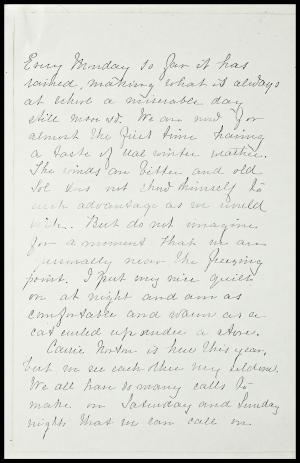 Every Monday so far it has
rained, making what is always
at school a miserable day
still more so. We are now for
almost the first time having
a taste of real winter weather.
The winds are bitter and old
Sol does not show himself to
such advantage as we would
wish. But do not imagine
for a moment that we are
usually near the freezing
point. I put my nice quilt
on at night and am as
comfortable and warm as a
cat curled up under a stove.
Carrie Norton is here this year,
but we see each other very seldom.
We all have so many calls to
make on Saturday and Sunday
nights that we can call on